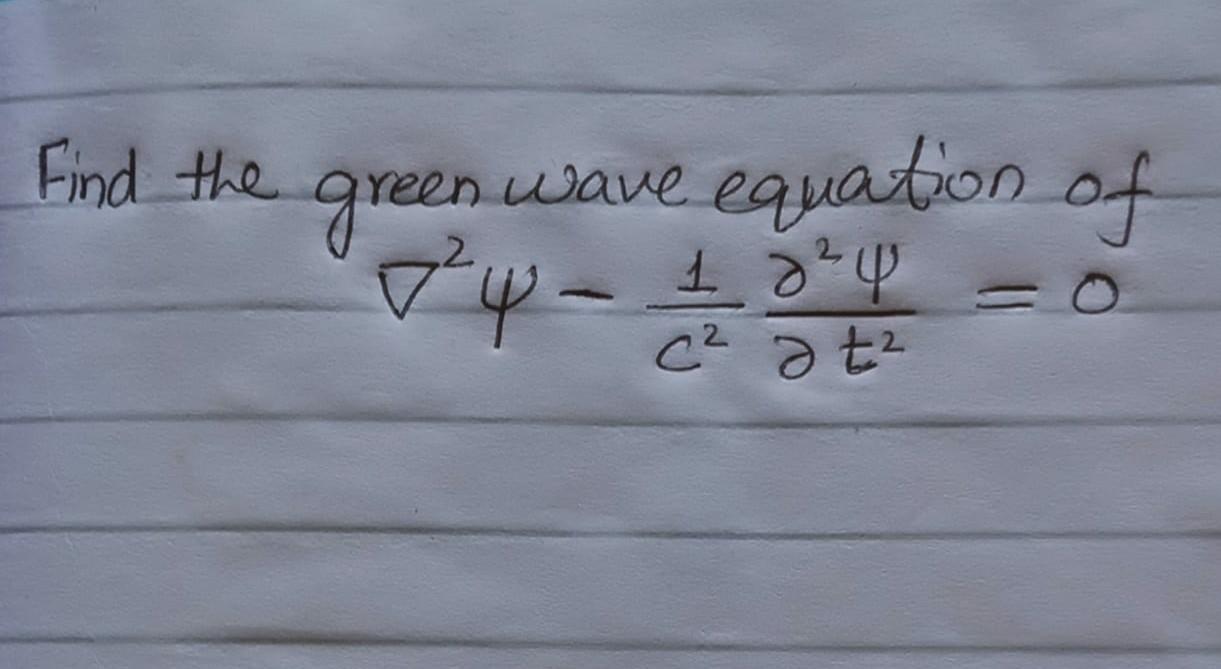 Find the green wave equation of
∇²ψ - 1/c² ∂²ψ/∂t² = 0